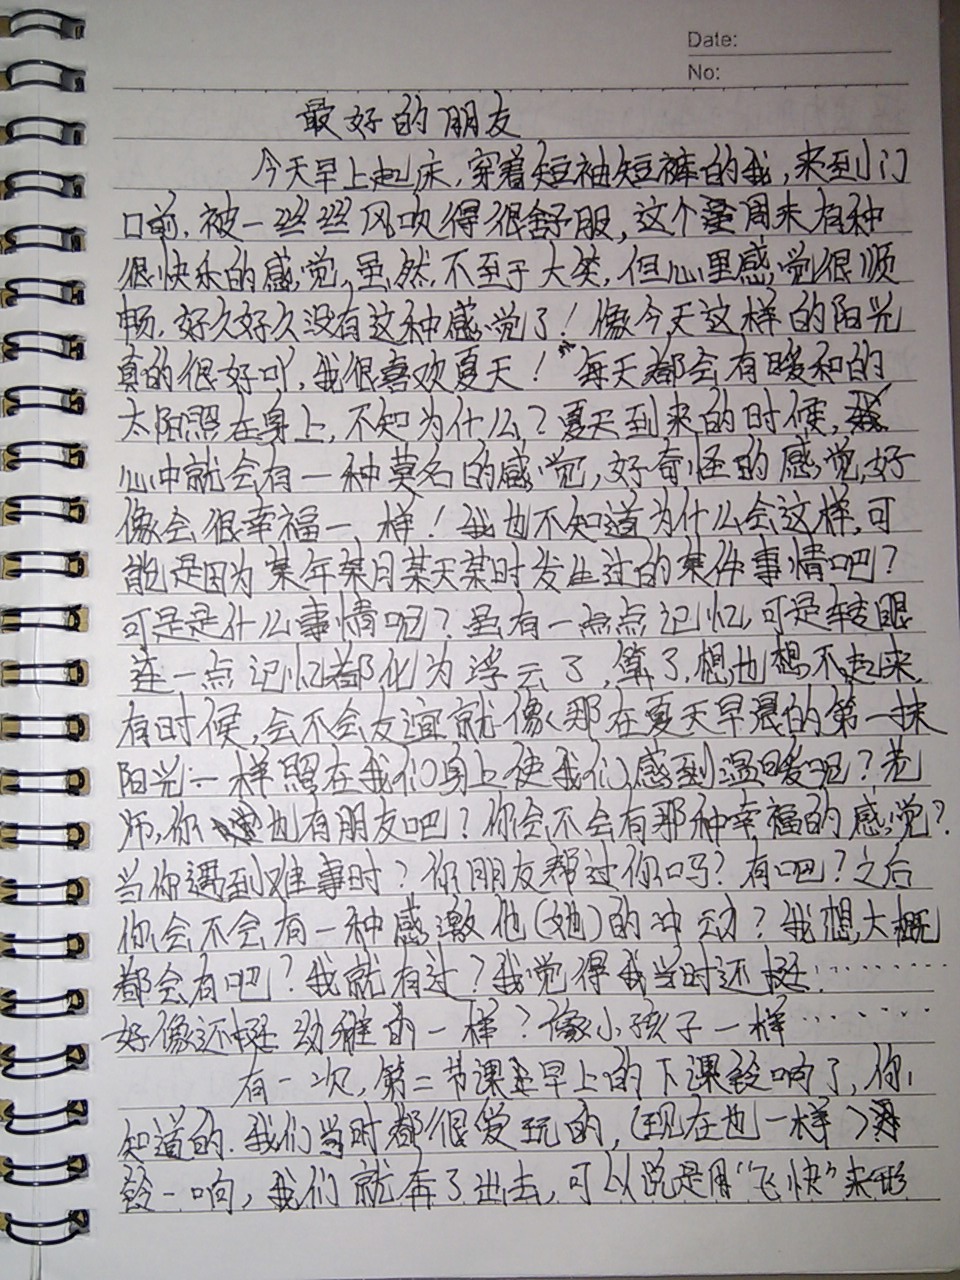 Date:
No:
最好的朋友
今天早上起床,穿着短袖短裤的我,来到门
口前,被一丝丝风吹得很舒服,这个周末有种
很快乐的感觉,虽然不至于大笑,但心里感觉很顺
畅,好久好久没有这种感觉了!像今天这样的阳光
真的很好吖,我很喜欢夏天!每天都会有暖和的
太阳照在身上,不知为什么?夏天到来的时候,
心中就会有一种莫名的感觉,好奇怪的感觉,好
像会很幸福一样!我也不知道为什么会这样,可
能是因为某年某月某天某时发生过的某件事情吧?
可是是什么事情呢?虽有一点点记忆,可是转眼
连一点记忆都化为浮云了,算了想也想不起来,
有时候,会不会友谊就像那在夏天早晨的第一抹
阳光一样照在我们身上使我们感到温暖呢?老
师,你也有朋友吧?你会不会有那种幸福的感觉?
当你遇到难事时?你朋友帮过你吗?有吧?之后
你会不会有一种感激他(她)的冲动?我想,大概
都会有吧?我就有过?我觉得我当时还挺………
好像还挺幼稚的一样?像小孩子一样………
有一次,第二节课早上的下课铃响了,你
知道的.我们当时都很爱玩的,(现在也一样)
铃一响,我们就奔了出去,可以说是用“飞快”来形